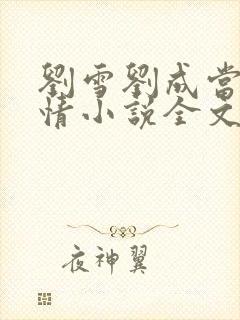 劉雪劉成當
情小說全文
夜神翼